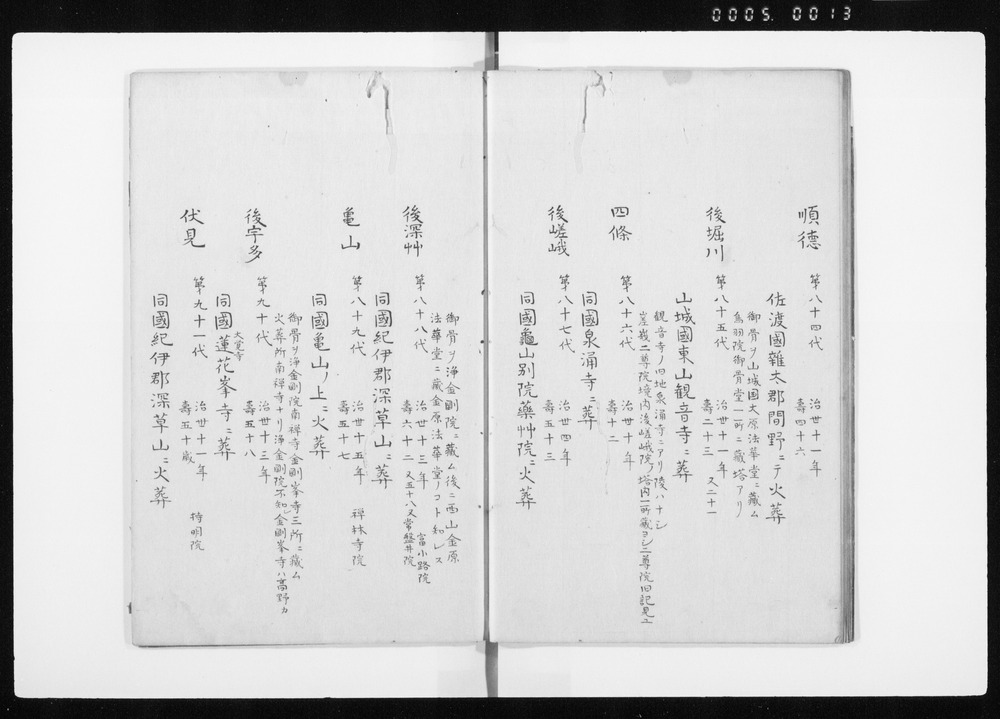 0005. 0013
順德
第八十四代
治世十一年
壽四十六
佐渡國雜太郡間野ニテ火葬
御骨ヲ山城國大原法華堂ニ藏ム
鳥羽院御骨堂一所ニ藏塔アリ
後堀川
第八十五代
治世十一年
壽二十三 又二十一
山城國東山観音寺ニ葬
観音寺ノ旧地泉涌寺ニアリ陵ハナシ
四條
第八十六代
治世十年
壽十二
同國泉涌寺ニ葬
後嵯峨
第八十七代
治世四年
壽五十三
同國龜山別院藥艸院ニ火葬
御骨ヲ浄金剛院ニ藏ム後ニ西山金原
法華堂ニ藏金原法華堂ノコト知レス
後深艸
第八十八代
治世十三年 富小路院
壽六十二 又五十八又常盤井院
同國紀伊郡深草山ニ葬
亀山
第八十九代
治世十五年 禅林寺院
壽五十七
同國亀山ノ上ニ火葬
御骨ヲ浄金剛院南禅寺金剛峯寺三所ニ藏ム
火葬所南禅寺ナリ浄金剛院不知金剛峯寺ハ高野カ
後宇多
第九十代
治世十三年
壽五十八
大覚寺
同國蓮花峯寺ニ葬
伏見
第九十一代
治世十一年 持明院
壽五十歳
同國紀伊郡深草山ニ火葬